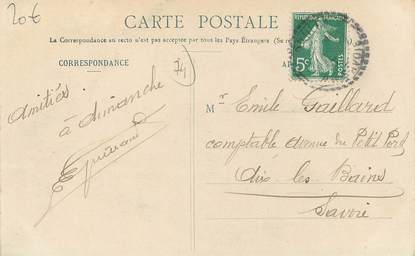 20€
CARTE POSTALE
La Correspondance au recto n'est pas acceptée par tous les Pays Étrangers (Se
CORRESPONDANCE
74
REPUBLIQUE FRANÇAISE
5c
POSTES
Amitiés
à dimanche
Mr Emile Gaillard
comptable avenue du Petit Port
Aix les Bains
Savoie